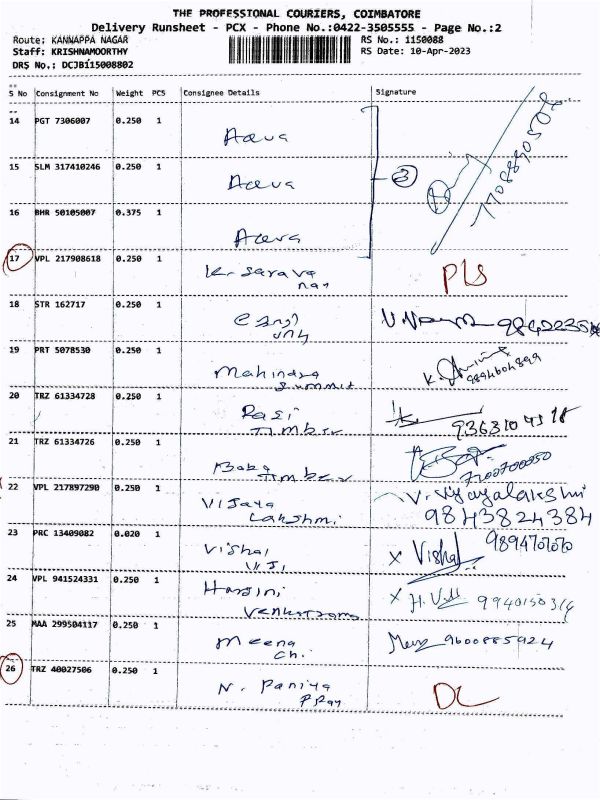 THE PROFESSIONAL COURIERS, COIMBATORE
Delivery Runsheet - PCX - Phone No.:0422-3505555 - Page No.:2
Route: KANNAPPA NAGAR RS No.: 1150088
Staff: KRISHNAMOORTHY RS Date: 10-Apr-2023
DRS No.: DCJB115008802
S No Consignment No Weight PCS Consignee Details Signature
14 PGT 7306007 0.250 1
15 SLM 317410246 0.250 1 3
16 BHR 50105007 0.375 1
17 VPL 217908618 0.250 1 K. Sarava PLS
nan
18 STR 162717 0.250 1
19 PRT 5078530 0.250 1 Mahindra K.
Summit 9894604899
20 TRZ 61334728 0.250 1 Rasi
Timber
21 TRZ 61334726 0.250 1 Baba
Timber
22 VPL 217897290 0.250 1 Vijaya V. Vijayalakshmi
Lakshmi 9843824384
23 PRC 13409082 0.020 1 Vishal x Vishal
24 VPL 941524331 0.250 1 Hasini x H.
25 MAA 299504117 0.250 1 Meena 9600885924
Ch.
26 TRZ 40027506 0.250 1 N. DL